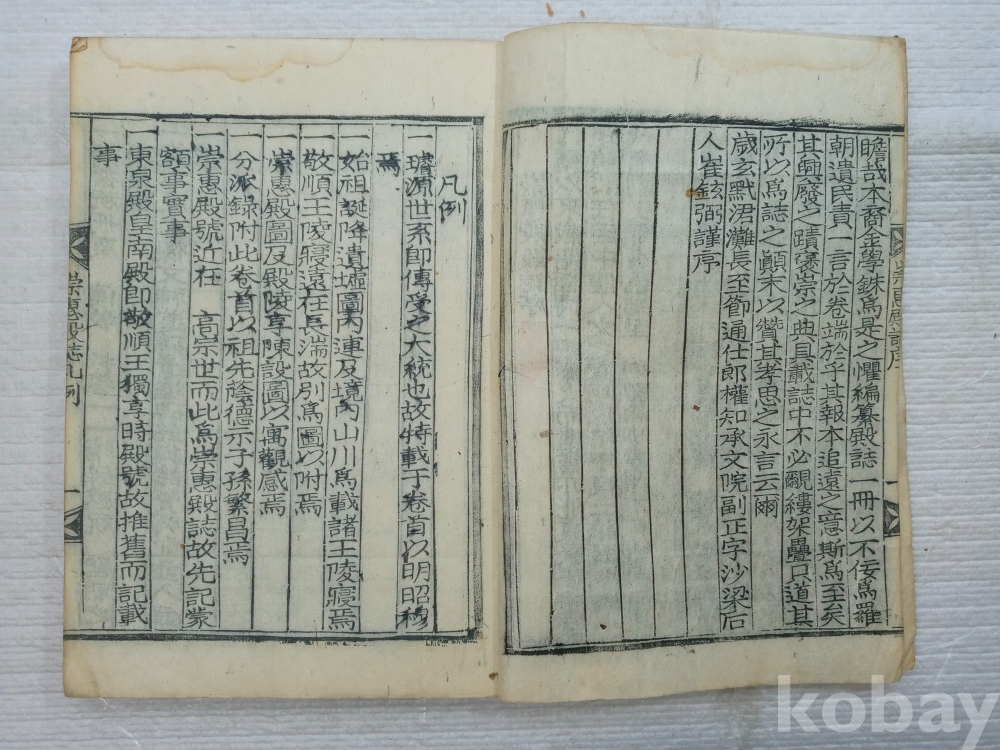 瞻哉本裔金學銖爲是之懼編纂殿誌一冊以不佞爲羅
朝遺民責一言於卷端於乎其報本追遠之意斯爲至矣
其興廢之蹟褒崇之典具載誌中不必覼縷架疊只道其
所以爲誌之顚末以贊其孝思之永言云爾
歲玄黓涒灘長至節通仕郎權知承文院副正字沙梁后
人崔鉉弼謹序
崇惠殿誌序
凡例
一璿源世系卽傳受之大統也故特載于卷首以明昭穆
焉
始祖誕降遺墟圖內連及境內山川爲載諸王陵寢焉
一敬順王陵寢遠在長湍故別爲圖以附焉
一崇惠殿圖及殿陵享陳設圖以寓觀感焉
一分派錄附此卷首以祖先蔭德示子孫繁昌焉
一崇惠殿號近在 高宗世而此爲崇惠殿誌故先記蒙
額事實事
一東泉殿皇南殿卽敬順王獨享時殿號故推舊而記載
事
崇惠殿誌凡例
一
kobay